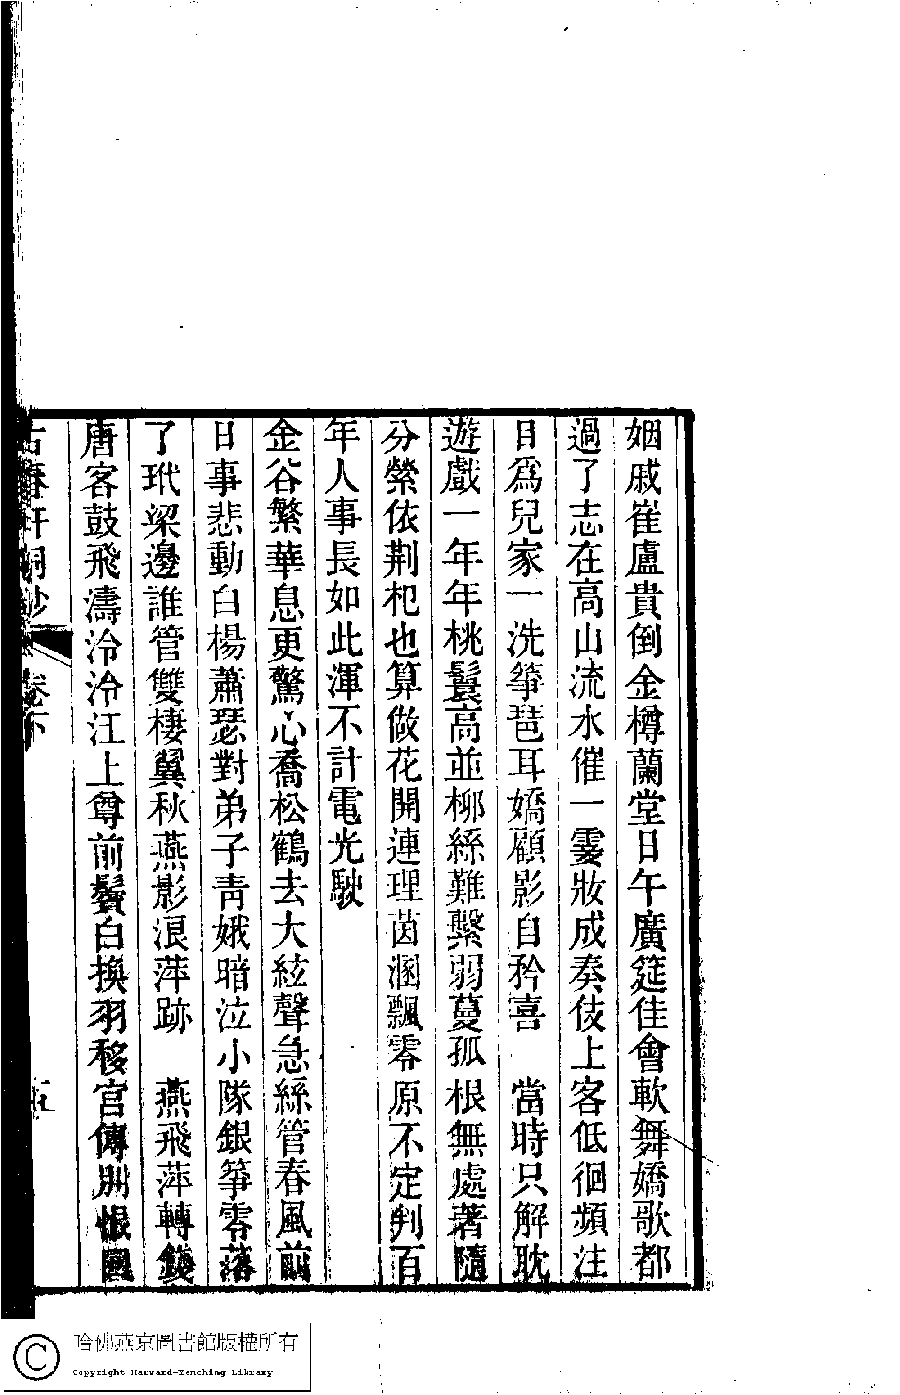 姻戚崔盧貴倒金樽蘭堂日午廣筵佳會軟舞嬌歌都
過了志在高山流水催一霎妝成奏伎上客低徊頻注
目爲兒家一洗箏琶耳嬌顧影自矜喜　當時只解耽
遊戲一年年桃鬟高並柳絲難繫弱蔓孤根無處著隨
分縈依荆杞也算做花開連理茵溷飄零原不定判百
年人事長如此渾不計電光駛
金谷繁華息更驚心喬松鶴去大絃聲急絲管春風前
日事悲動白楊蕭瑟對弟子青娥暗泣小隊銀箏零落
了玳梁邊誰管雙棲翼秋燕影浪萍跡　燕飛萍轉錢
唐客鼓飛濤泠泠汪上尊前鬢白換羽移宮傳別恨
卷下
Copyright Harvard-Yenching Library
哈佛燕京圖書館版權所有